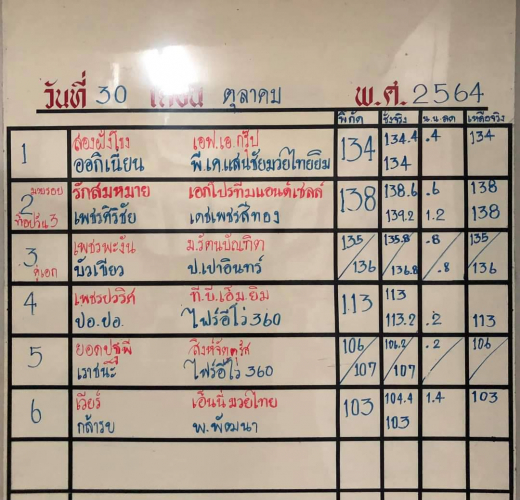 วันที่ 30 เดือน ตุลาคม พ.ศ. 2564
พิกัด ชั่งจริง น.น.ลด เหลือจริง
1 สองฝั่งโรง เอฟ.เอ.กรุ๊ป 134 134.4 .4 134
ออกิเนียน พี.เค.แสนชัยมวยไทยยิม 134
2 มวยรอง รักสมหมาย เอกโปรทีมแอนด์เซลล์ 138 138.6 .6 138
ท๊อปวัน 3 เพชรศิริชัย เดชเพชรสีทอง 139.2 1.2 138
3 เพชรพะงัน ม.รัตนบัณฑิต 135 135.8 .8 135
คู่เอก บัวเขียว ป.เปาอินทร์ 136 136.8 .8 136
4 ที.บี.เอ็ม.ยิม 113 113
ปอ.ยอ. ไฟร์อีโว่ 360 113.2 .2 113
5 สิงห์จัตุรัส 106 106.2 .2 106
ไฟร์อีโว่ 360 107 107
6 เวียร์ เอ็นนี่มวยไทย 103 104.4 1.4 103
กล้ารบ พ.พัฒนา 103